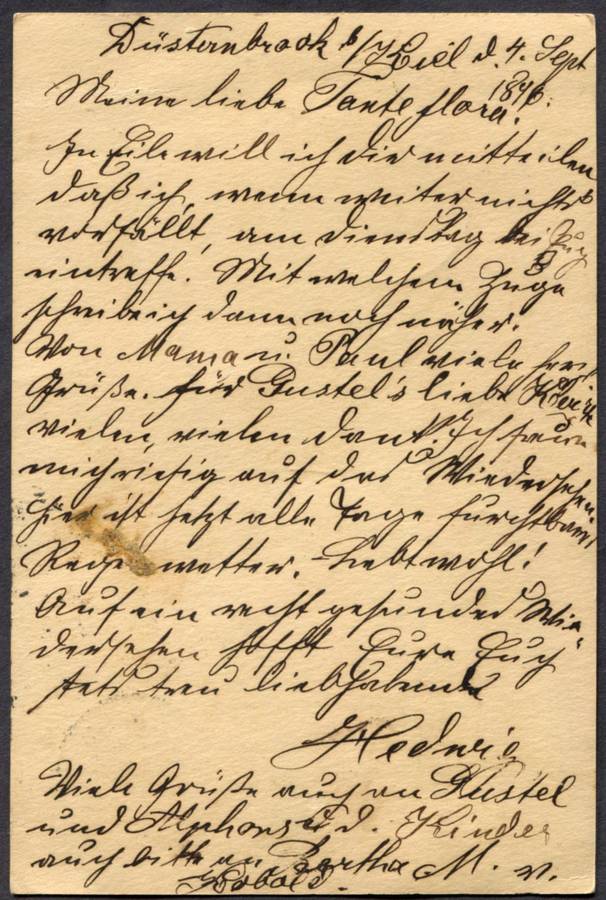 Düsternbrook b/Kiel d. 4. Sept
1896.
Meine liebe Tante Flora!
In Eile will ich dir mitteilen
daß ich, wenn weiter nichts
vorfällt, am Dienstag bei
eintreffe. Mit welchem Zuge
schreibe ich dann noch näher.
Von Mama u. Paul viele
Grüße. Für Gustel's liebe
vielen, vielen Dank. Ich freue
mich riesig auf das Wiedersehen.
Hier ist jetzt alle Tage furchtbares
Regenwetter. Lebt wohl!
Auf ein recht gesundes Wie-
dersehen hofft Eure Euch
stets treu liebhabende
Hedwig
Viele Grüße auch an Gustel
und Alphons u. d. Kinder
auch bitte an Bertha M. v.